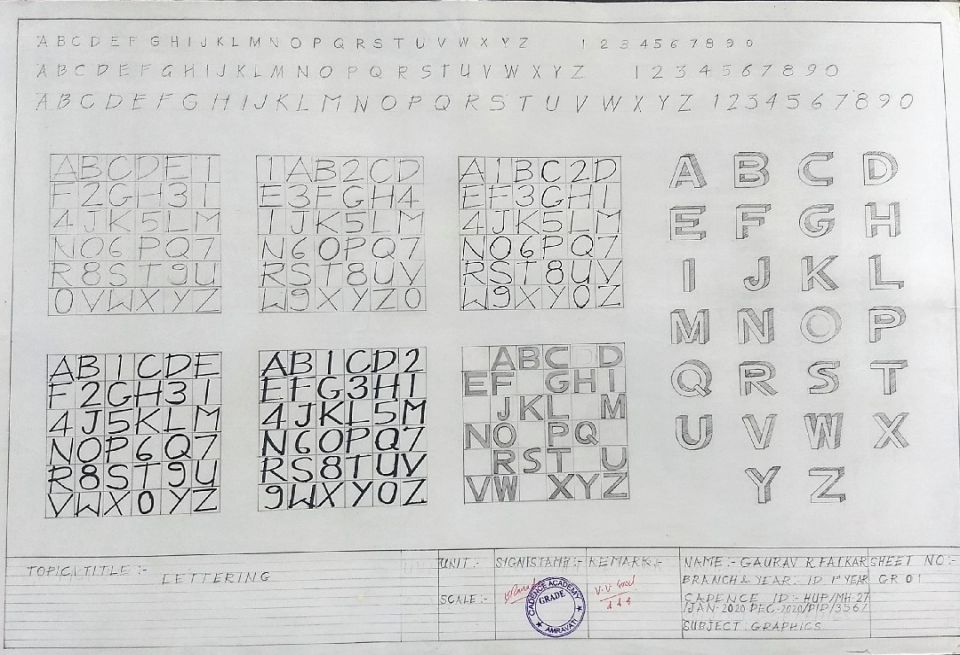 A B C D E F G H I J K L M N O P Q R S T U V W X Y Z 1 2 3 4 5 6 7 8 9 0
A B C D E F G H I J K L M N O P Q R S T U V W X Y Z 1 2 3 4 5 6 7 8 9 0
A B C D E F G H I J K L M N O P Q R S T U V W X Y Z 1 2 3 4 5 6 7 8 9 0
A B C D E 1
F 2 G H 3 I
4 J K 5 L M
N O 6 P Q 7
R 8 S T 9 U
0 V W X Y Z
1 A B 2 C D
E 3 F G H 4
I J K 5 L M
N 6 O P Q 7
R S T 8 U V
W 9 X Y Z 0
A 1 B C 2 D
E F 3 G H I
4 J K 5 L M
N O 6 P Q 7
R S T 8 U V
W 9 X Y 0 Z
A B C D
E F G H
I J K L
M N O P
Q R S T
U V W X
Y Z
A B 1 C D E
F 2 G H 3 I
4 J 5 K L M
N O P 6 Q 7
R 8 S T 9 U
V W X 0 Y Z
A B 1 C D 2
E F G 3 H I
4 J K L 5 M
N 6 O P Q 7
R S 8 T U V
9 W X Y 0 Z
A B C D
E F G H I
J K L M
N O P Q
R S T U
V W X Y Z
TOPIC\TITLE :-
LETTERING
UNIT:-
SCALE:-
SIGN\STAMP:-
CADENCE ACADEMY
GRADE
AMRAVATI
REMARK:-
V.V. Good
NAME:- GAURAV R. FATKAR
BRANCH & YEAR:- ID 1st YEAR
CADENCE ID:- HUP/MH-27
/JAN-2020 DEC-2020/PID/3567
SUBJECT:GRAPHICS
SHEET NO:-
GR 01